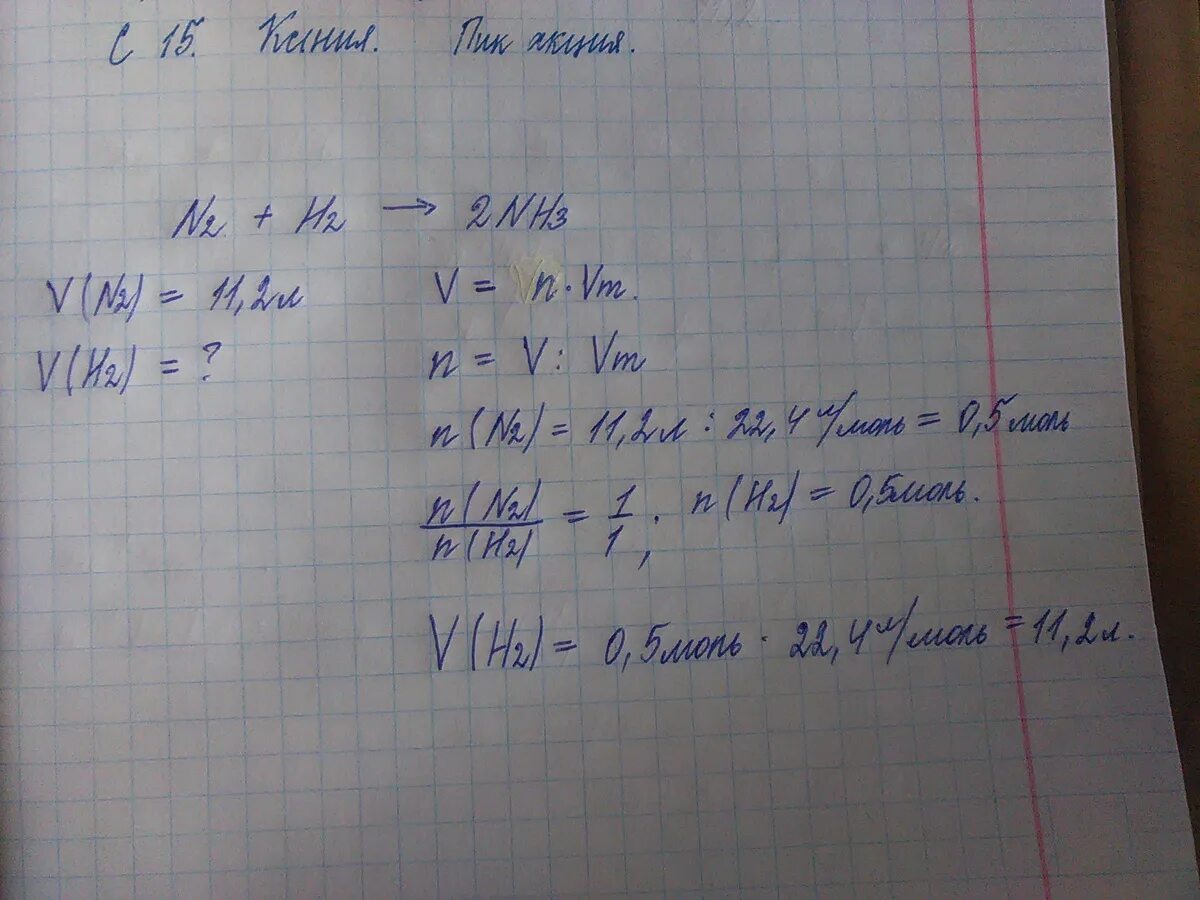 С 15. Ксения. Пик акция.
N2 + H2 → 2NH3
V(N2) = 11,2л V = n·Vm.
V(H2) = ? n = V : Vm
n(N2) = 11,2л : 22,4 л/моль = 0,5 моль
n(N2)/n(H2) = 1/1, . n(H2) = 0,5моль.
V(H2) = 0,5моль · 22,4 л/моль = 11,2л.